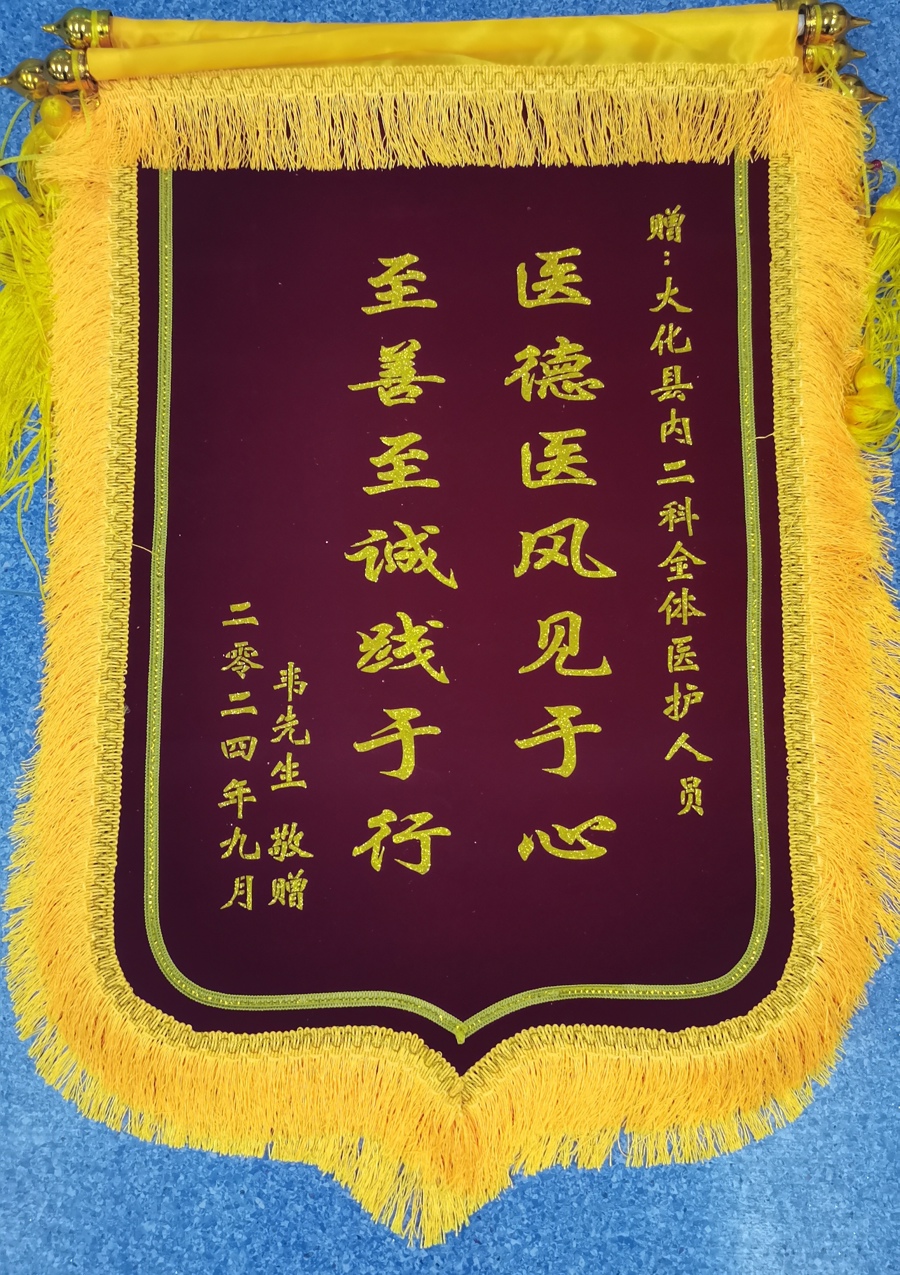 赠：大化县内二科全体医护人员
医德医风见于心
至善至诚践于行
韦先生 敬赠
二零二四年九月